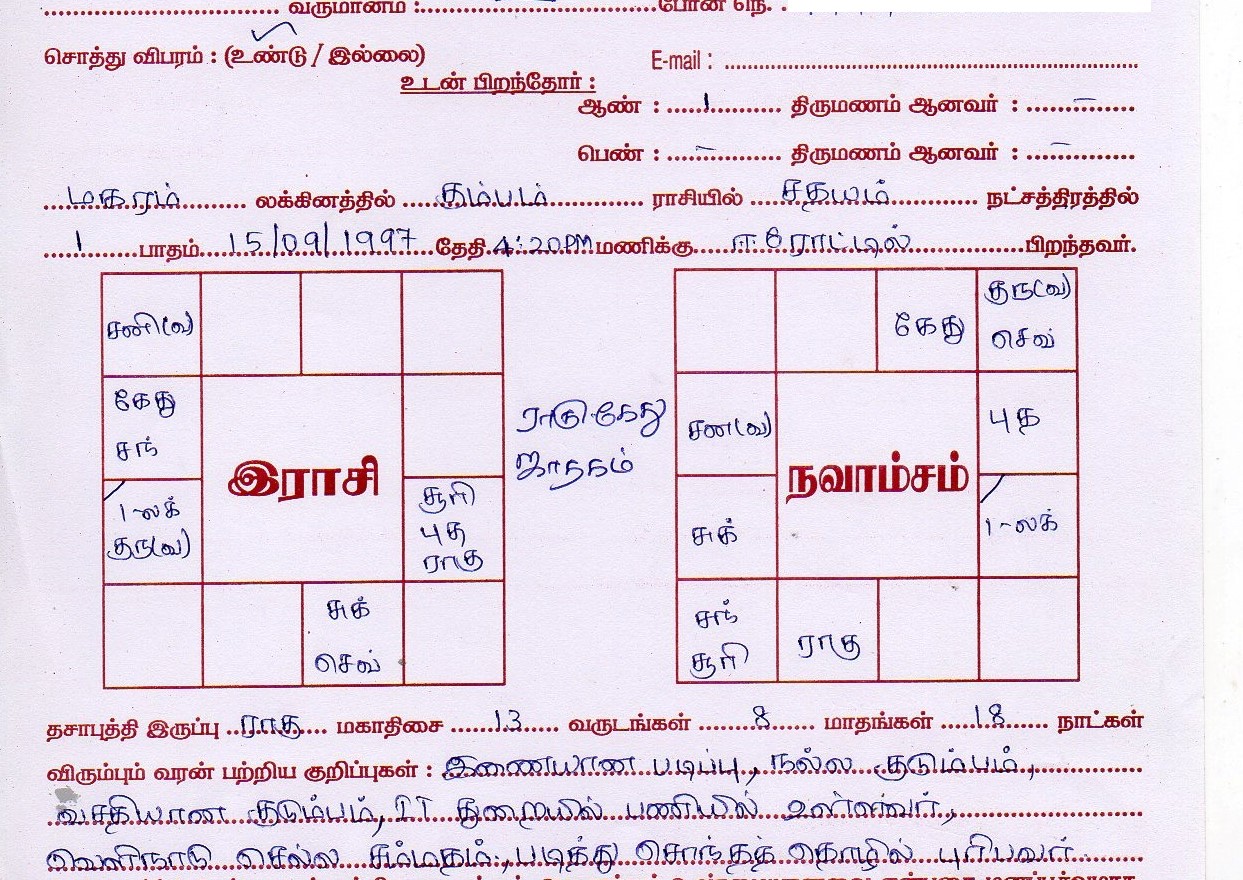 வருமானம் : போன் நெ. :
சொத்து விபரம் : (உண்டு / இல்லை) E-mail :
உடன் பிறந்தோர் :
ஆண் : 1 திருமணம் ஆனவர் : –
பெண் : – திருமணம் ஆனவர் : –
மகரம் லக்கினத்தில் கும்பம் ராசியில் சதயம் நட்சத்திரத்தில்
1 பாதம் 15/09/1997 தேதி 4:20PM மணிக்கு ஈரோட்டில் பிறந்தவர்.
சனி(வ)
கேது
சந்
இராசி
1-லக்
குரு(வ)
சூரி
புத
ராகு
சுக்
செவ்
ராகு கேது
ஜாதகம்
கேது
குரு(வ)
செவ்
சனி(வ)
புத
நவாம்சம்
சுக்
1-லக்
சந்
சூரி
ராகு
தசாபுத்தி இருப்பு ராகு மகாதிசை 13 வருடங்கள் 8 மாதங்கள் 18 நாட்கள்
விரும்பும் வரன் பற்றிய குறிப்புகள் : இணையான படிப்பு, நல்ல குடும்பம்,
வசதியான குடும்பம், IT துறையில் பணியில் உள்ளவர்,
வெளிநாடு செல்ல சம்மதம், படித்து சொந்தத் தொழில் புரிபவர்